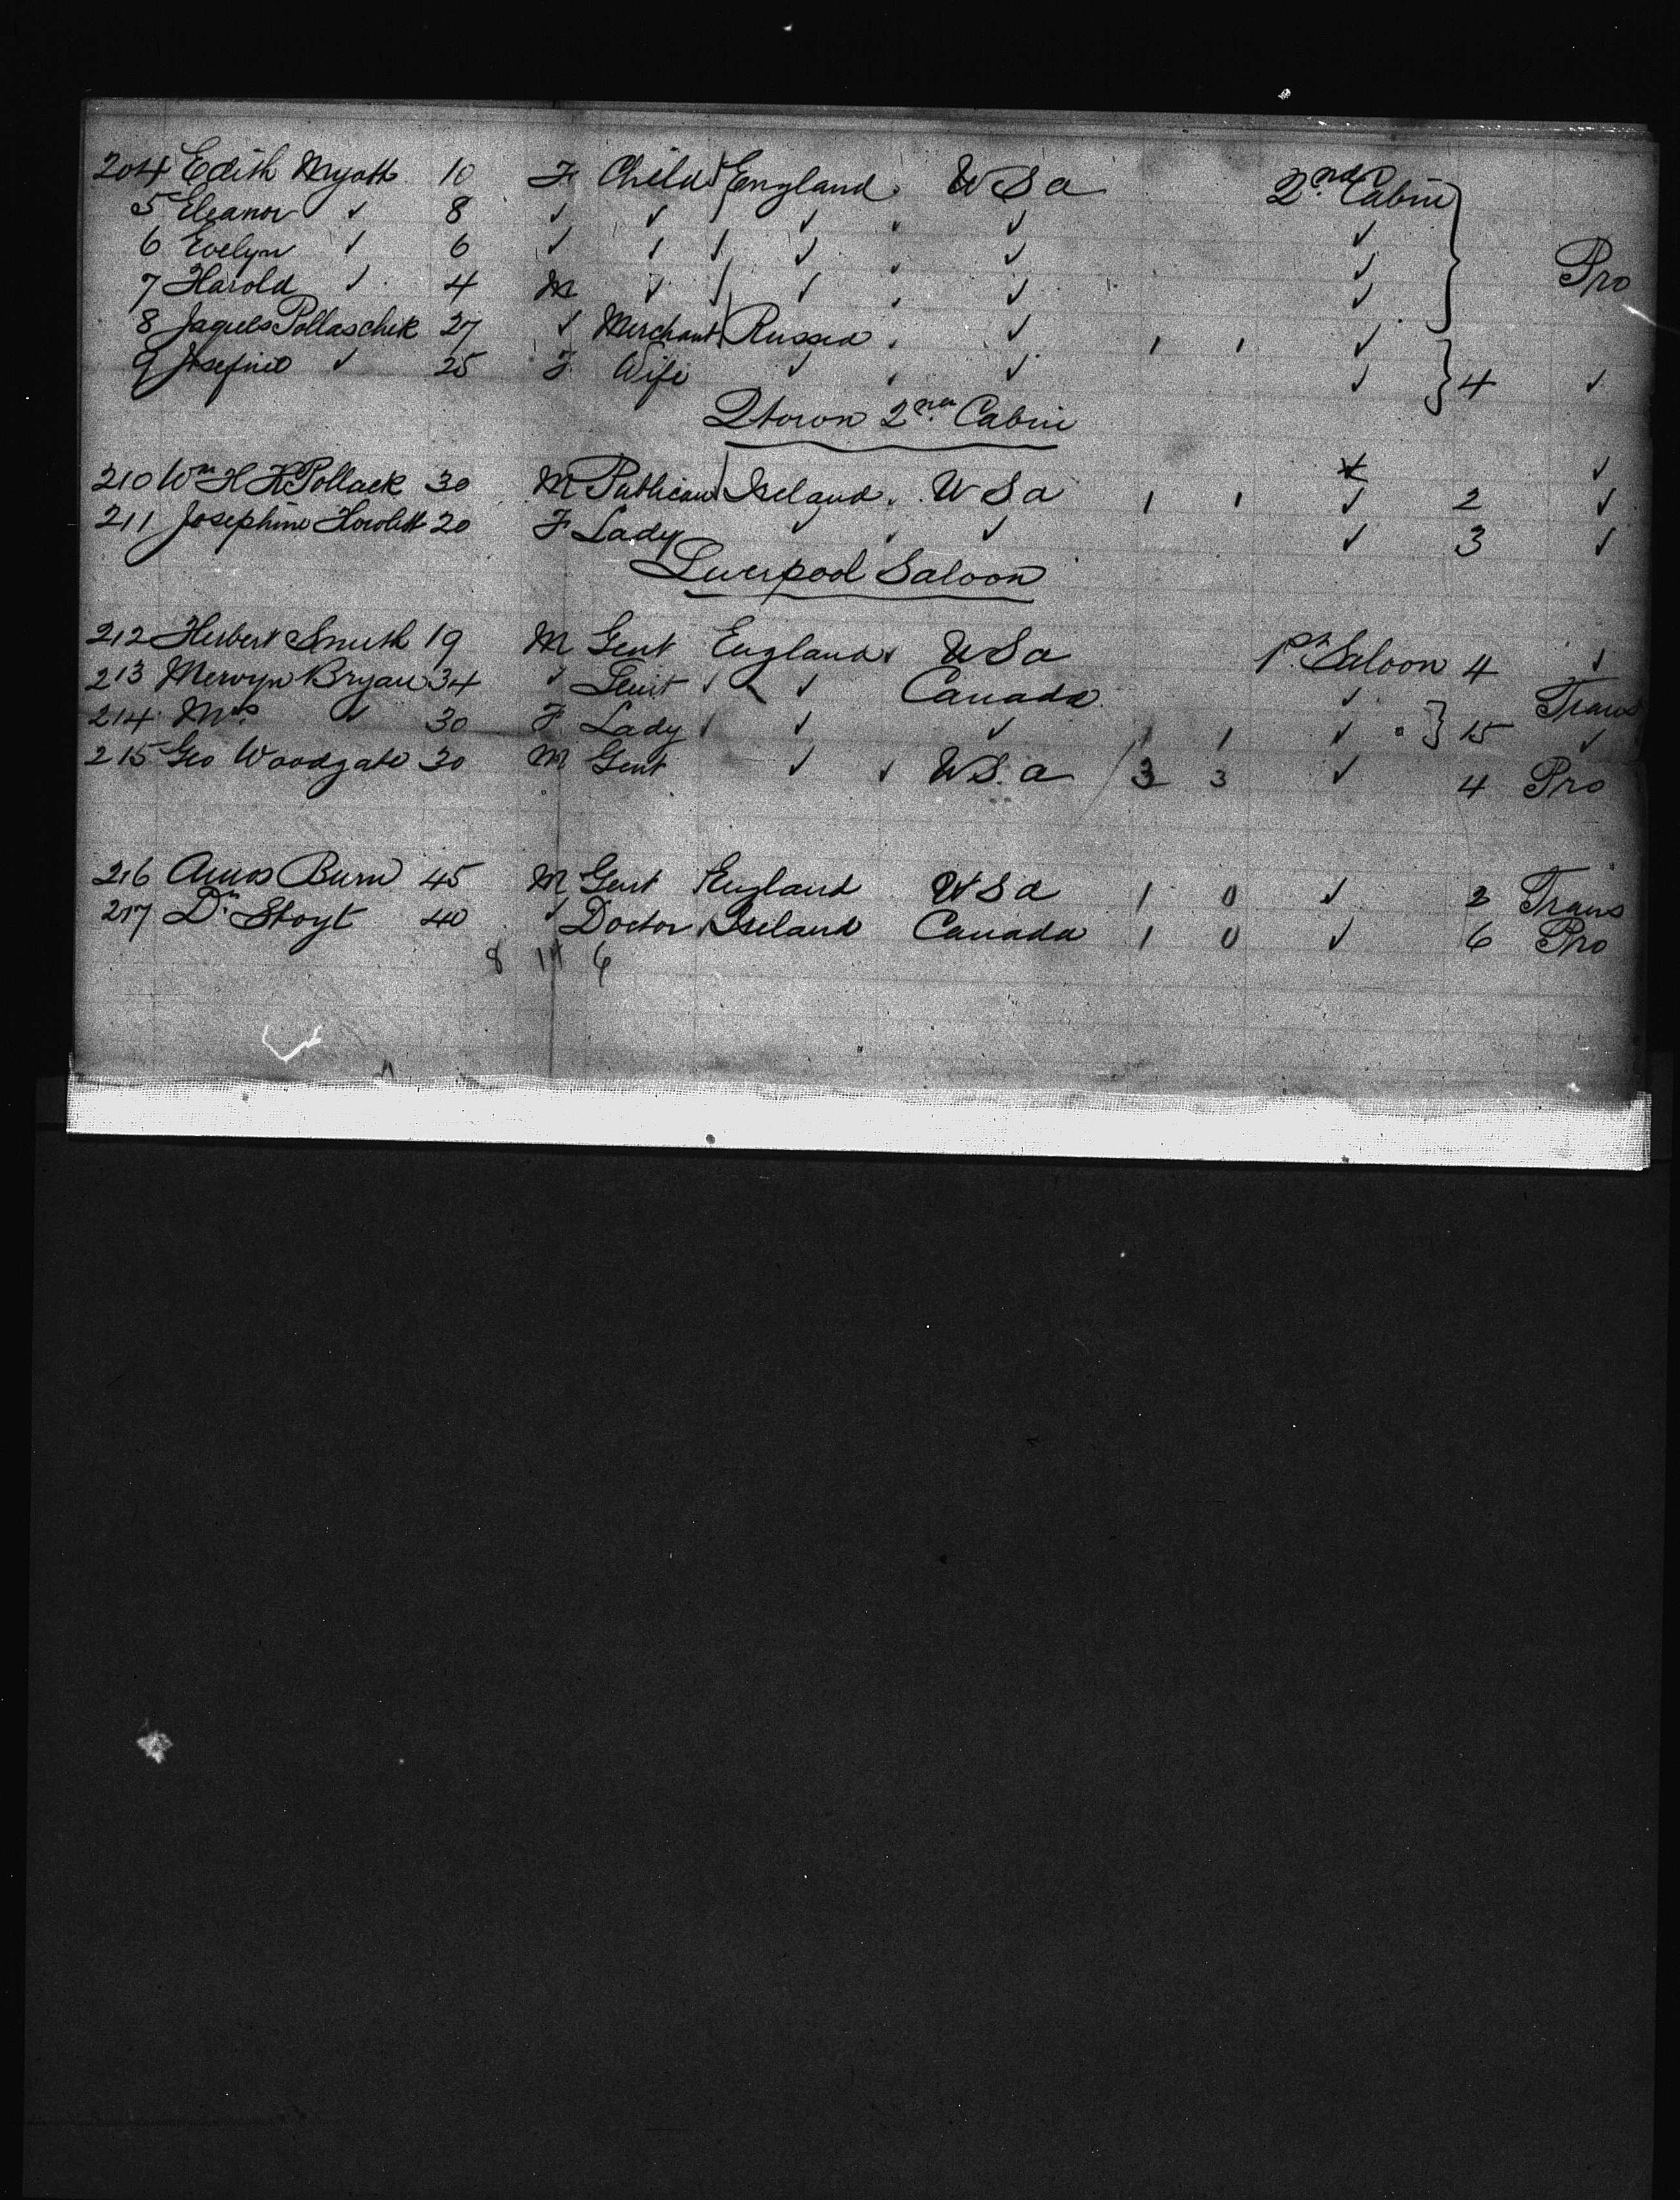 204 Edith Myatt 10 F Child England USa 2nd Cabin
5 Eleanor ✓ 8 ✓ ✓ ✓ ✓ ✓
6 Evelyn ✓ 6 ✓ ✓ ✓ ✓ ✓ Pro
7 Harold ✓ 4 M ✓ ✓ ✓ ✓
8 Jaques Pollaschek 27 ✓ Merchant Russia ✓ 1 1 ✓
9 Josefine ✓ 25 F Wife ✓ ✓ ✓ 4 ✓
Qtown 2nd Cabin
210 Wm H H Pollack 30 M Publican Ireland USa 1 1 ✓ 2 ✓
211 Josephine Howlett 20 F Lady ✓ ✓ ✓ 3 ✓
Liverpool Saloon
212 Herbert Smith 19 M Gent England USa 1st Saloon 4 ✓
213 Mervyn Bryan 34 ✓ ✓ Canada ✓ Trans
214 Mrs ✓ 30 F Lady ✓ ✓ 1 1 ✓ 15 ✓
215 Geo Woodgate 30 M Gent ✓ US.a 3 3 ✓ 4 Pro
216 Amos Burn 45 M Gent England USa 1 0 ✓ Trans
217 Dr Stoyt 40 ✓ Doctor Ireland Canada 1 0 ✓ 6 Pro
8 11 6